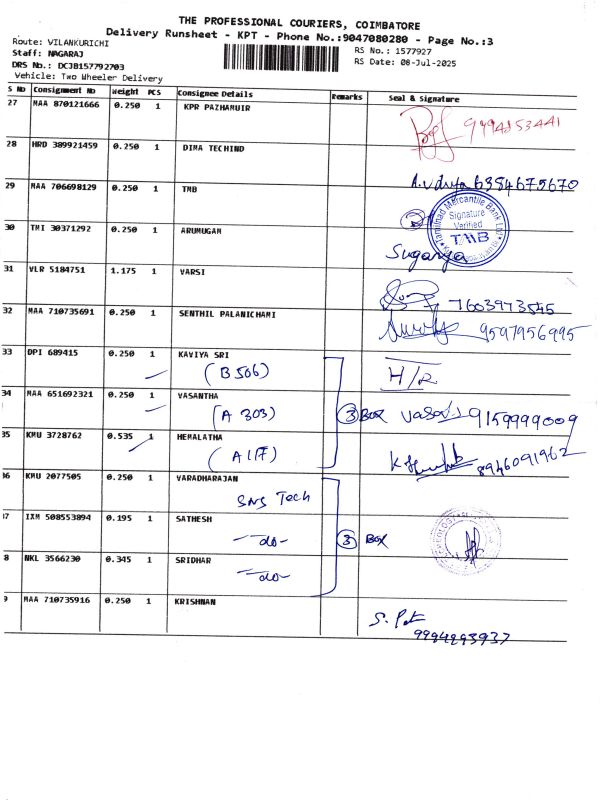 THE PROFESSIONAL COURIERS, COIMBATORE
Delivery Runsheet - KPT - Phone No.:9047080280 - Page No.:3
Route: VILANKURICHI
RS No.: 1577927
Staff: NAGARAJ
RS Date: 08-Jul-2025
DRS No.: DCJB157792703
Vehicle: Two Wheeler Delivery
S No Consignment No Weight PCS Consignee Details Remarks Seal & Signature
27 MAA 870121666 0.250 1 KPR PAZHAMUIR
28 HRD 389921459 0.250 1 DIMA TECHIND
A.Vidya 6384675670
29 MAA 706698129 0.250 1 TMB
Tamilnad Mercantile Bank Ltd
Signature
Verified
TMB
30 TMI 30371292 0.250 1 ARUMUGAM
Suganya
31 VLR 5184751 1.175 1 VARSI
7603973545
32 MAA 710735691 0.250 1 SENTHIL PALANICHAMI
9597956995
33 DPI 689415 0.250 1 KAVIYA SRI
(B 506)
H/R
34 MAA 651692321 0.250 1 VASANTHA
(A 303)
3 BOX 9159999009
35 KMU 3728762 0.535 1 HEMALATHA
(A 117)
8946091962
36 KMU 2077505 0.250 1 VARADHARAJAN
SNS Tech
37 IXM 508553894 0.195 1 SATHESH
-do-
3 BOX
38 NKL 3566230 0.345 1 SRIDHAR
-do-
39 MAA 710735916 0.250 1 KRISHNAN